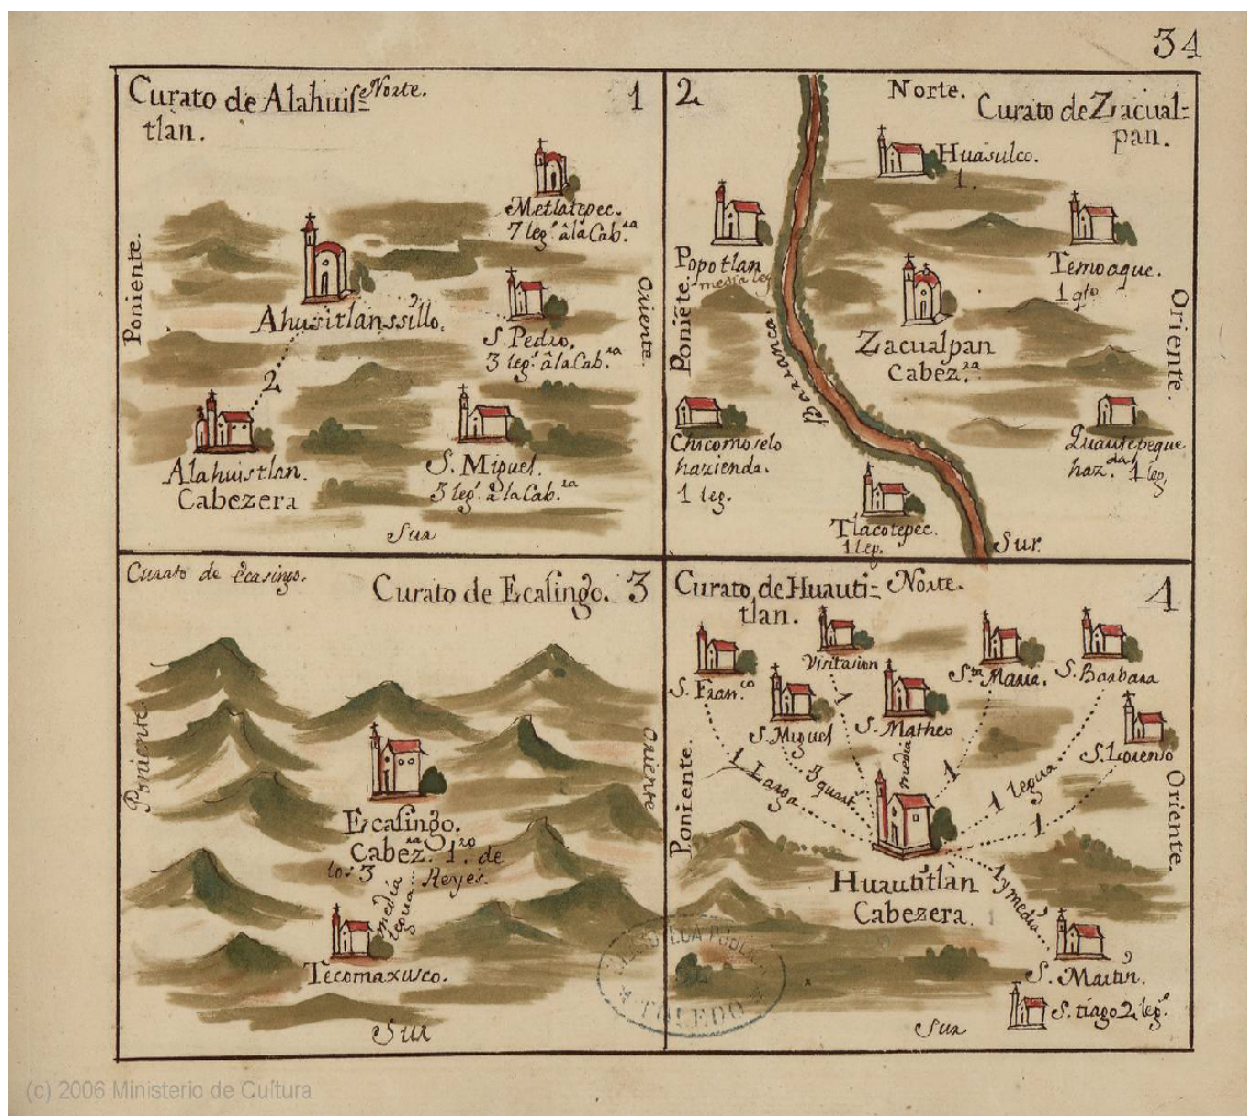 34
Curato de Alahuis=
tlàn.
Norte.
1
Metlatepec.
7 leg.ˢ â la Cab.ʳᵃ
Poniente.
Oriente.
Ahusitlanssillo.
S. Pedro.
3 leg.ˢ â la Cab.ʳᵃ
2
Alahuistlan.
Cabezera
S. Miguel.
3 leg.ˢ â la Cab.ʳᵃ
Sur
2
Norte.
Curato de Zacual=
pan.
Huasulco.
1.
Popotlan
media leg
Temoaque.
1 qto
Poniẽte.
Barranca.
Oriente.
Zacualpan
Cabez.ʳᵃ
Chicomoselo
hazienda.
1 leg.
Quautepeque
haz.ᵈᵃ 1 leg.
Tlacotepec.
1 leg.
Sur.
Curato de ecasingo.
Curato de Ecasingo. 3
Poniente.
Oriente
Ecasingo.
Cabez.ʳᵃ 1.ʳᵒ de
los 3 Reyes.
media
legua
Tecomaxusco.
Sur
Curato de Huauti=
tlan.
Norte.
4
S. Fran.ᶜᵒ
Visitasion
S.ᵗᵃ Maria.
S. Barbara
S. Miguel
S. Matheo
S. Lorenso
Poniente.
Oriente.
1 Larga
3 quart.
1
media
1
1 legua
1
1 y media
Huautitlàn
Cabezera.
S. Martin.
S. tiago 2 leg.ˢ
Sur
BIBLIOTECA PÚBLICA
* TOLEDO *
(c) 2006 Ministerio de Cultura